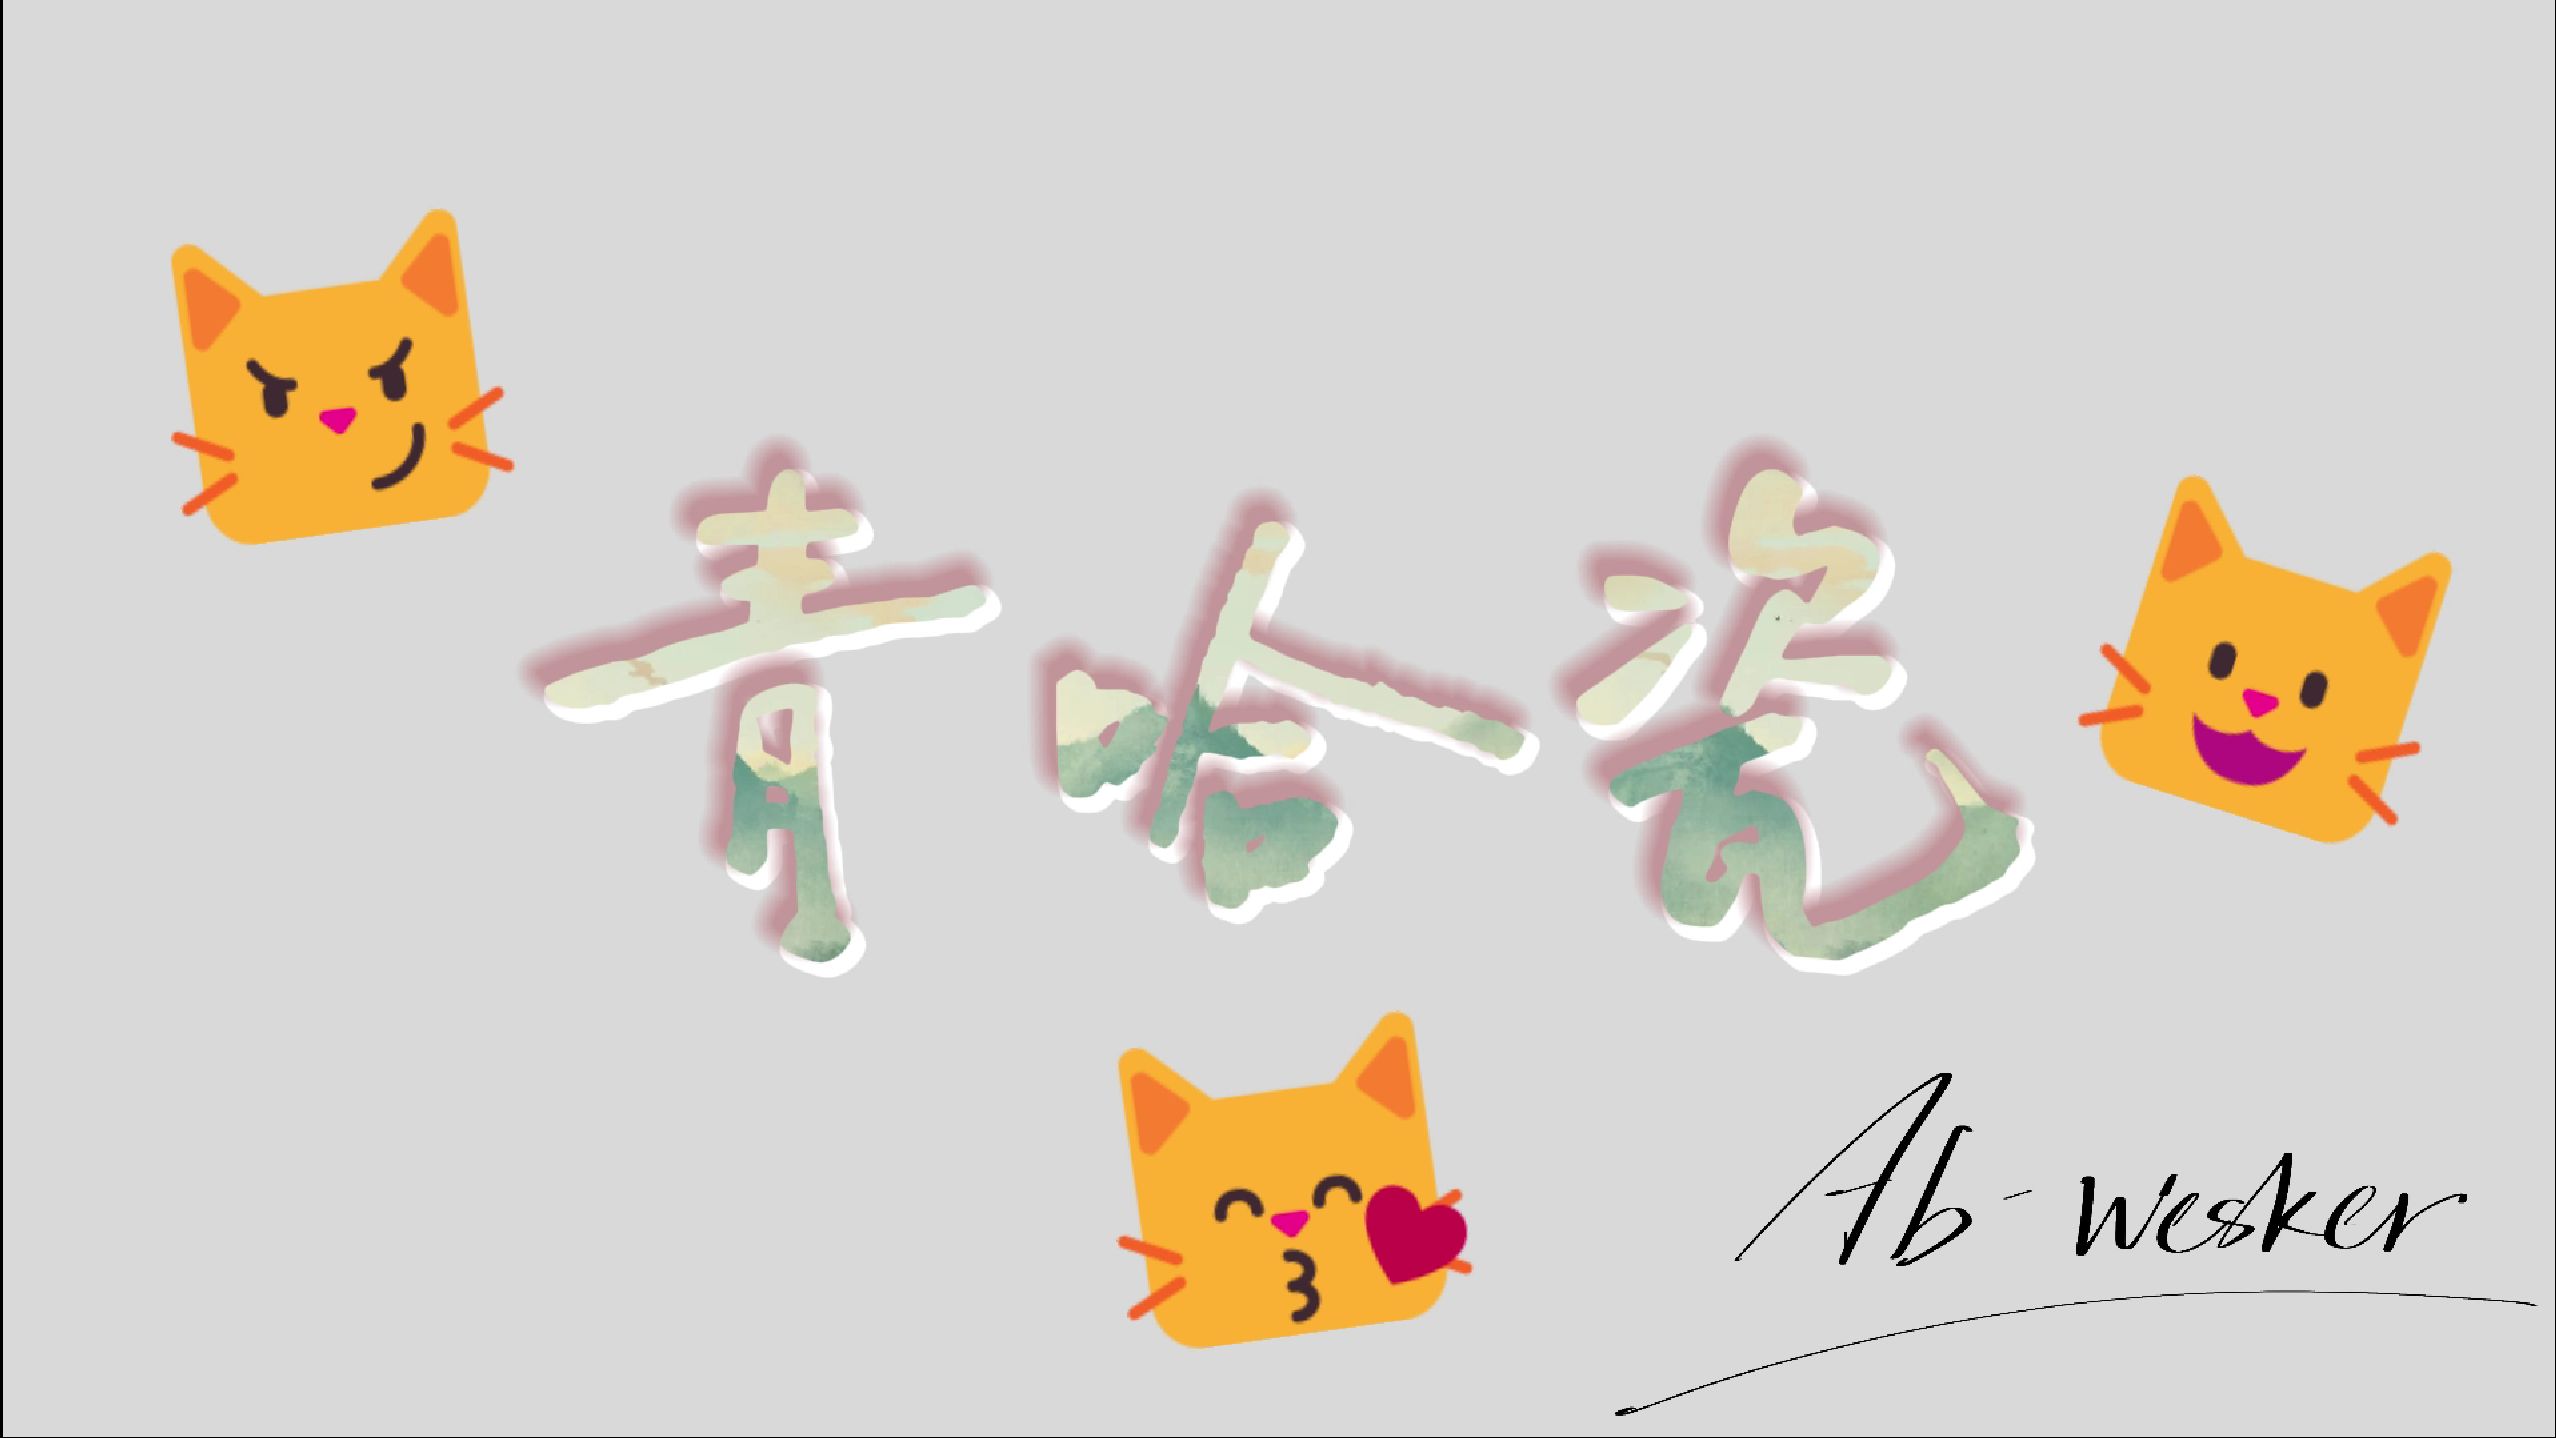 青哈瓷
Ab-wesker